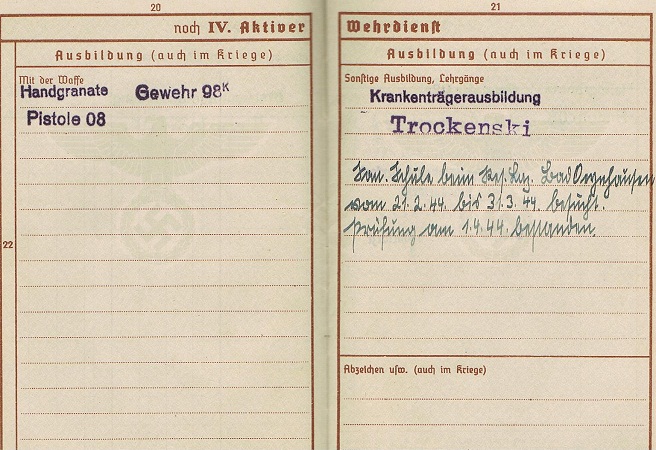 20
noch IV. Aktiver
Ausbildung (auch im Kriege)
Mit der Waffe
Handgranate Gewehr 98K
Pistole 08
22
21
Wehrdienst
Ausbildung (auch im Kriege)
Sonstige Ausbildung, Lehrgänge
Krankenträgerausbildung
Trockenski
San. Schule beim Res. Laz. Bad Oeynhausen
vom 21.2.44. bis 31.3.44. besucht.
Prüfung am 1.4.44. bestanden.
Abzeichen usw. (auch im Kriege)